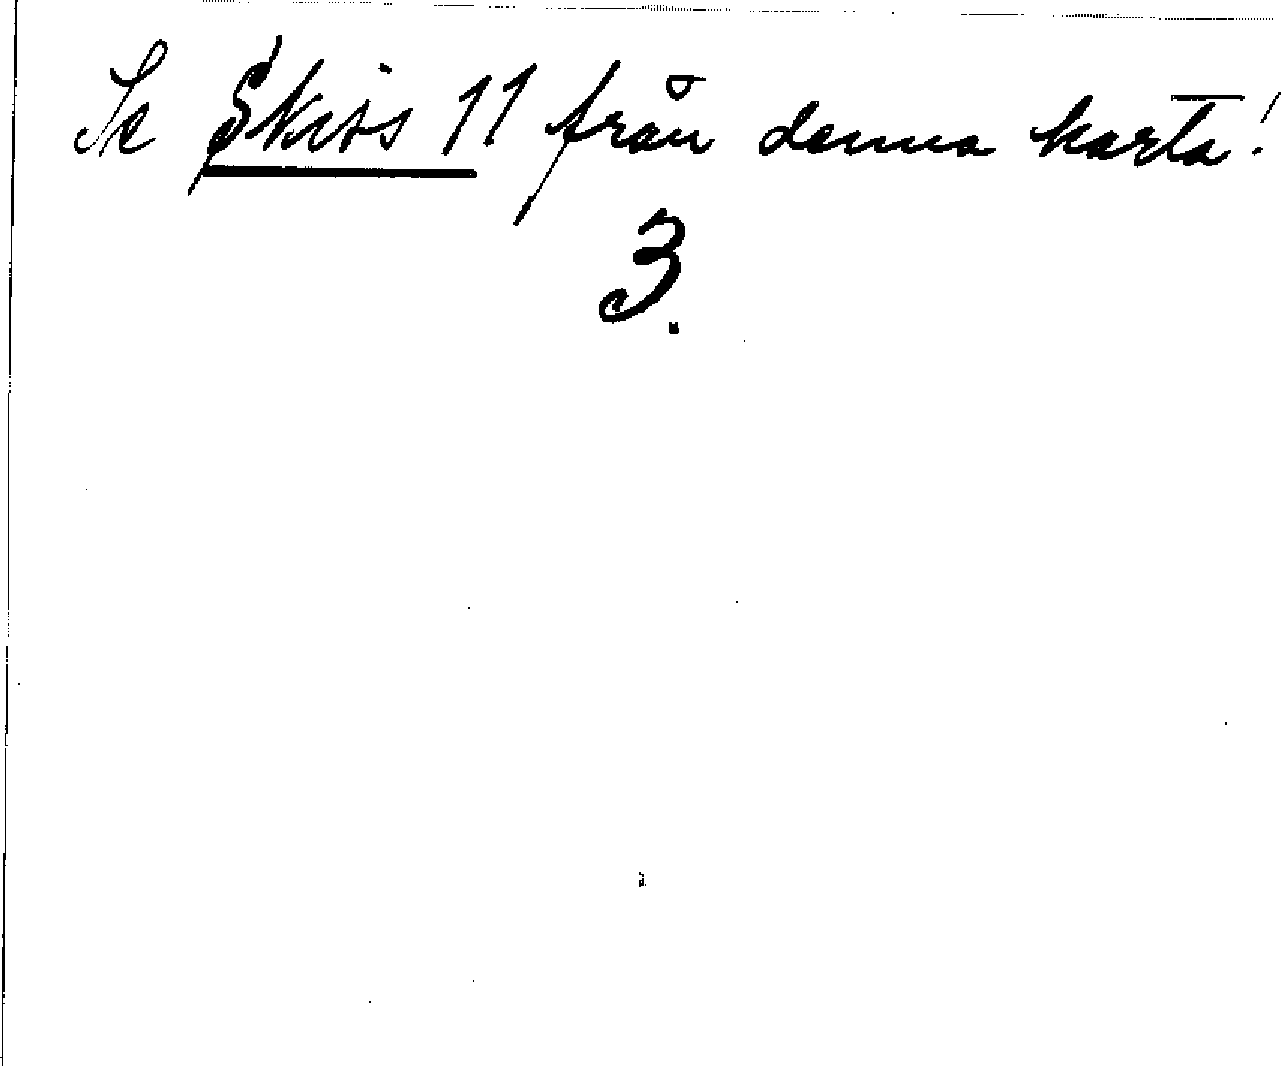 Se Skiss 11 från denna karta!
3.